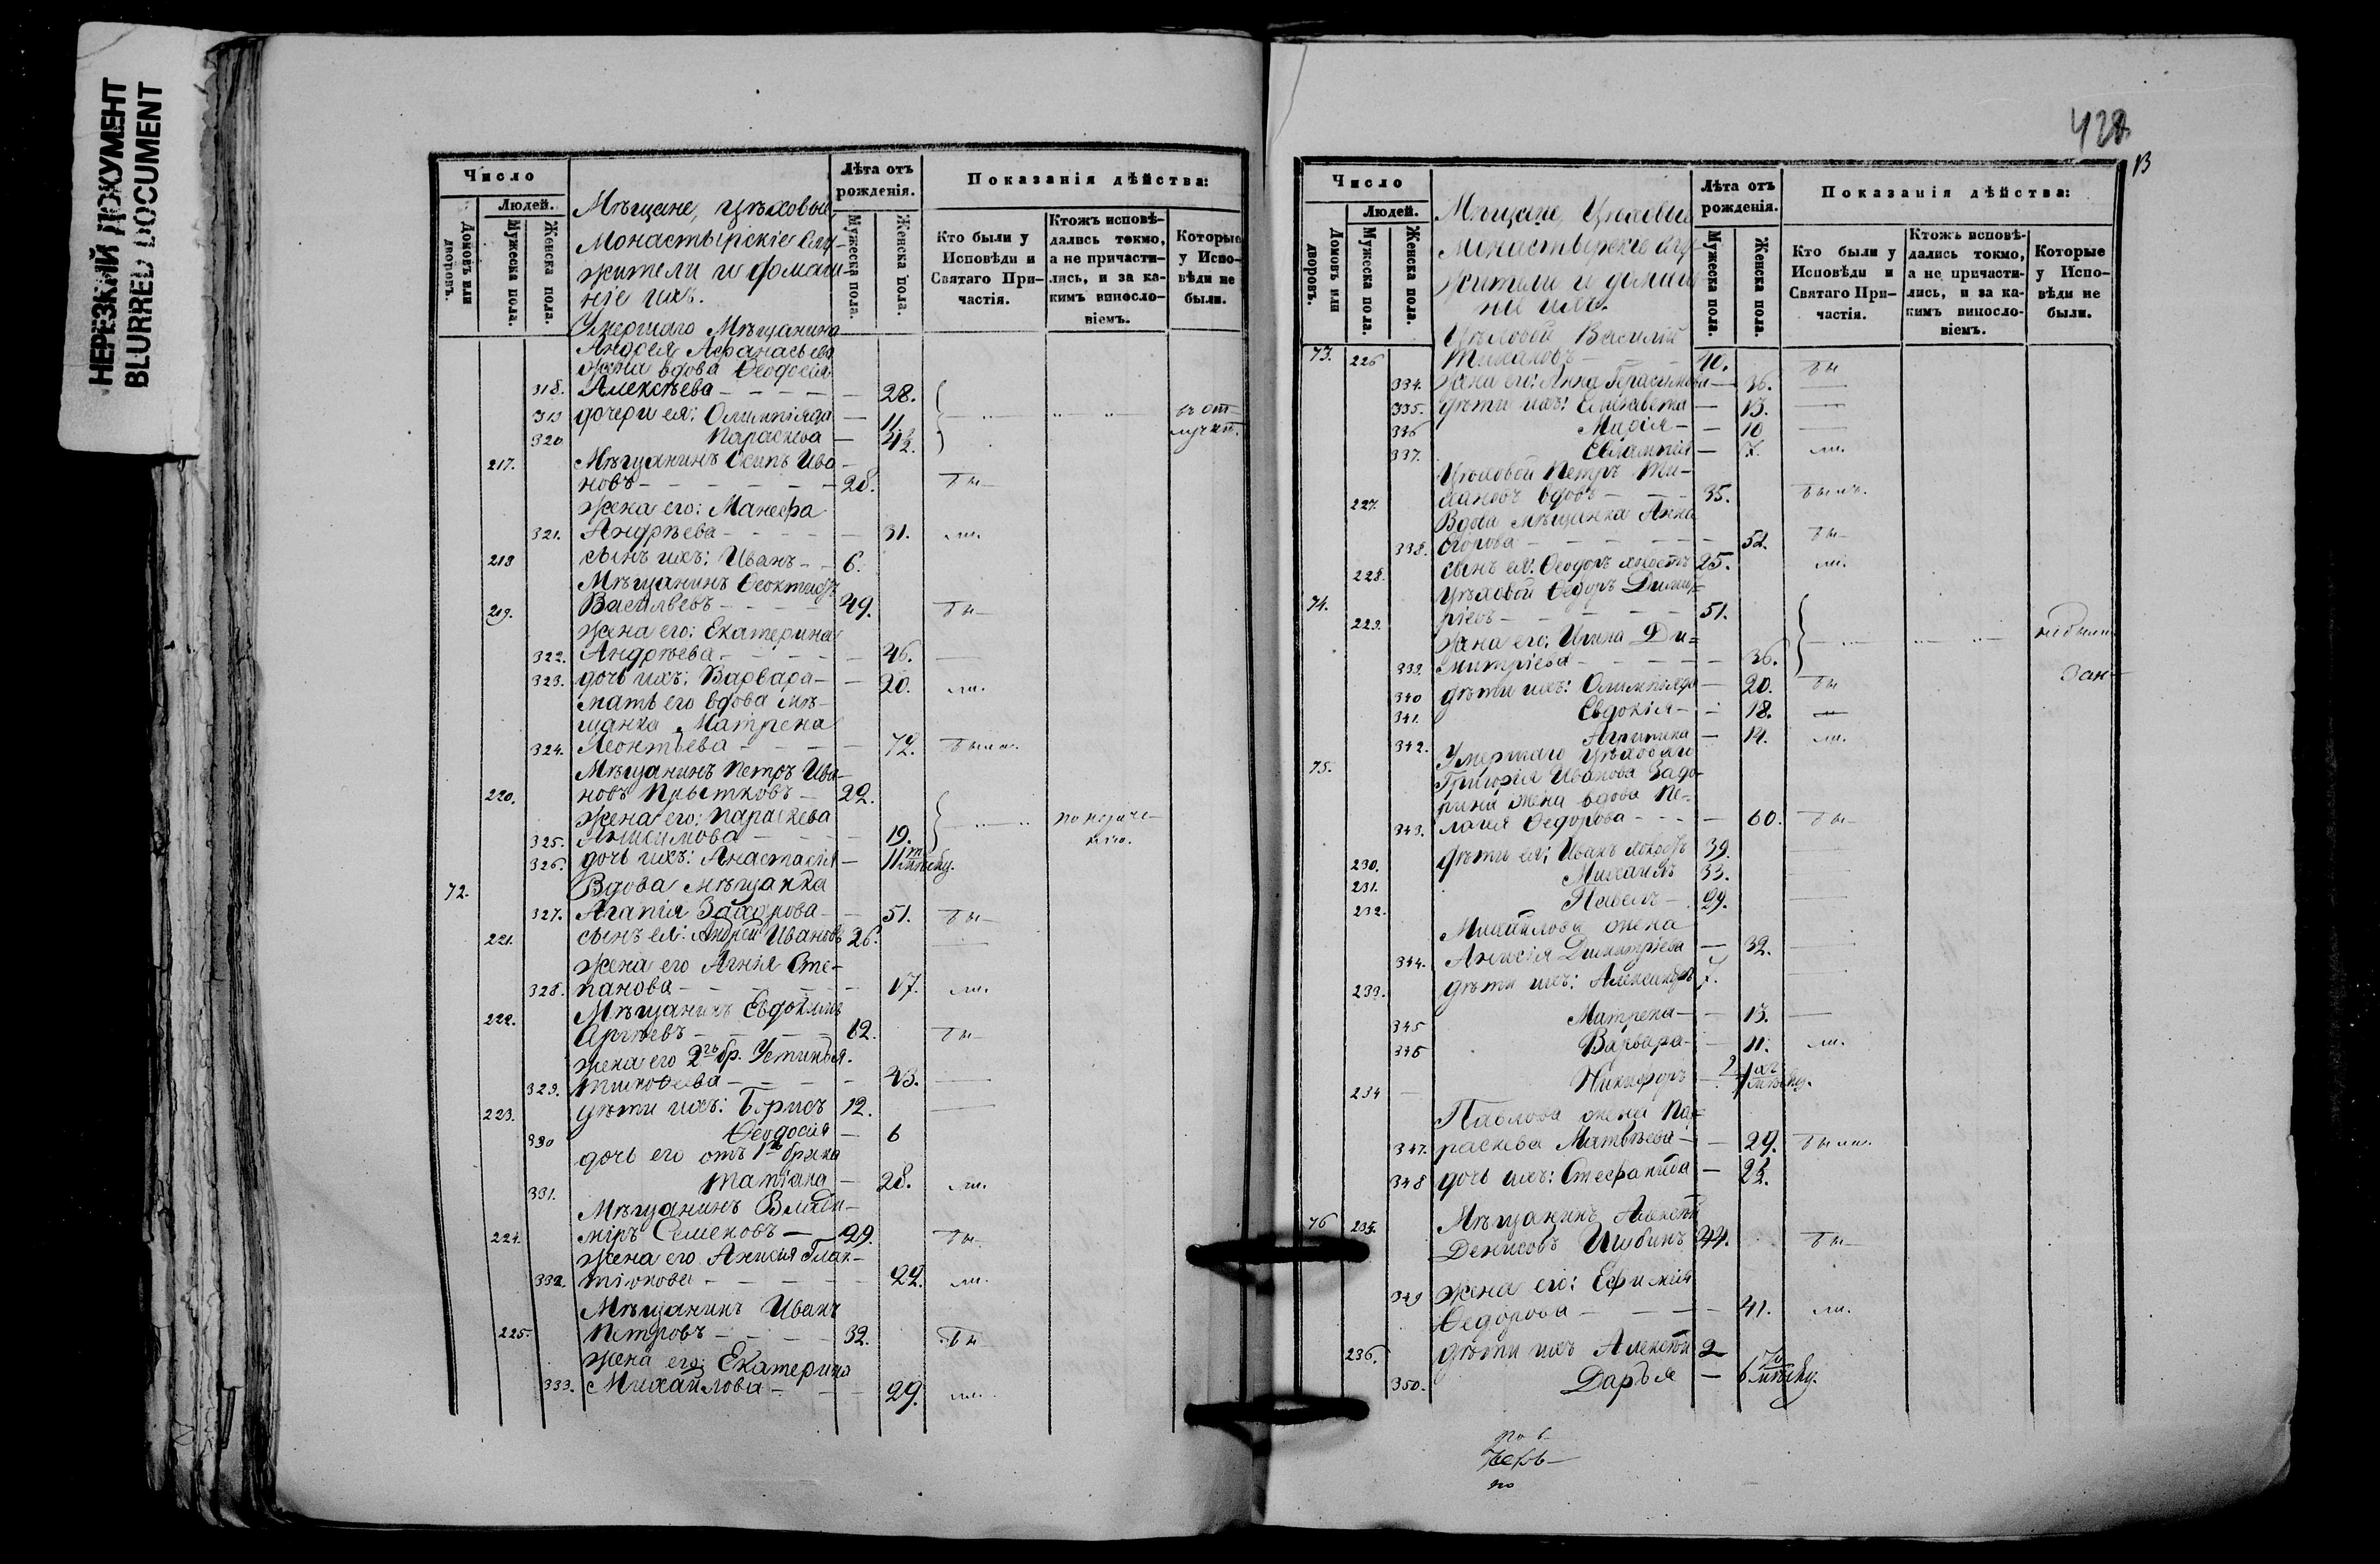 НЕРЕЗКИЙ ДОКУМЕНТ
BLURRED DOCUMENT
Число
Людей.
Домовъ или дворовъ.
Мужеска пола.
Женска пола.
Мѣщане, цѣховые,
Монастырскіе слу-
жители и домаш-
ніе ихъ.
Лѣта отъ рожденія.
Мужеска пола.
Женска пола.
Показанія дѣйства:
Кто были у Исповѣди и Святаго При-частія.
Ктожъ исповѣ-дались токмо, а не причасти-лись, и за ка-кимъ винос­ло-віемъ.
Которые у Испо-вѣди не были.
Умершаго Мѣщанина
Андрея Афанасьева
жена вдова Ѳеодосія
318. Алексѣева 28.
319 дочери ея: Олимпіяда 11. въ от-
320 Параскева 12. лучкѣ.
217. Мѣщанинъ Осипъ Ива-
новъ 28. бы-
жена его: Манефа
321. Андрѣева 31. ли.
218 сынъ ихъ: Иванъ 6.
Мѣщанинъ Ѳеоктистъ
219. Васильевъ 49. бы-
жена его: Екатерина
322. Андрѣева 46.
323. дочь ихъ: Варвара 20. ли.
мать его вдова мѣ-
щанка Матрена
324. Леонтьева 72. была.
Мѣщанинъ Петръ Ива-
220. новъ Прытковъ 22.
жена его: Параскева
325. Анисимова 19.
326. дочь ихъ: Анастасія 11 мѣсяцу.
72. Вдова мѣщанка
327. Агапія Захарова 51. бы-
221. сынъ ея: Андрей Ивановъ 26.
жена его Агнія Сте-
328. панова 17. ли.
222. Мѣщанинъ Евдокимъ
Сергѣевъ 62. бы-
жена его 2го бр. Устинья
329. Тимофеева 43.
223. дѣти ихъ: Борисъ 12.
330 Ѳеодосія 6
дочь его отъ 1го брака
331. Татіана 28. ли.
Мѣщанинъ Влади-
224. міръ Семеновъ 29. бы-
жена его Анисія Галак-
332. тіонова 22. ли.
Мѣщанинъ Иванъ
225. Петровъ 32. бы
жена его: Екатерина
333. Михайлова 29. ли.
428
Число
Людей.
Домовъ или дворовъ.
Мужеска пола.
Женска пола.
Мѣщане, Цѣховые
Монастырскіе слу-
жители и домаш-
ніе ихъ.
Лѣта отъ рожденія.
Мужеска пола.
Женска пола.
Показанія дѣйства:
Кто были у Исповѣди и Святаго При-частія.
Ктожъ исповѣ-дались токмо, а не причасти-лись, и за ка-кимъ винос­ло-віемъ.
Которые у Испо-вѣди не были.
Цѣховой Василій
73. 226 40. бы
334. жена его: Анна Герасимова 36.
335. дѣти ихъ: Елисавета 13.
336 Марія 10
337. Евлампія 7. ли.
Цѣховой Петръ
227. вдовъ 35. былъ.
Вдова мѣщанка Анна
338. Егорова 52. бы-
228. сынъ ея: Ѳеодоръ холостъ 25. ли.
Цѣховой Ѳедоръ Димит-
74. 229. ріевъ 51.
жена его: Ирина Ди-
339. митріева 36. не были
340 дѣти ихъ: Олимпіяда 20. бы
341. Евдокія 18.
342. Агрипина 14. ли.
75. Умершаго Цѣховаго
Григорія Иванова Задо-
рина жена вдова Пе-
343. лагія Ѳедорова 60. бы-
230. дѣти ея: Иванъ 39.
231. Михаилъ 33.
232. Павелъ 29.
Михайлова жена
344. Анисія Димитріева 32.
233. дѣти ихъ: Александръ 7.
345 Матрена 13.
346 Варвара 11. ли.
234 Никифоръ
Павлова жена Па-
347. раскева Матвѣева 29. была.
348 дочь ихъ: Стефанида
76 235. Мѣщанинъ Алексѣй
Денисовъ 44. бы-
349 жена его: Ефимія
Ѳедорова 41. ли.
236. дѣти ихъ Алексѣй 2
350. Дарья 6 мѣсяцу.